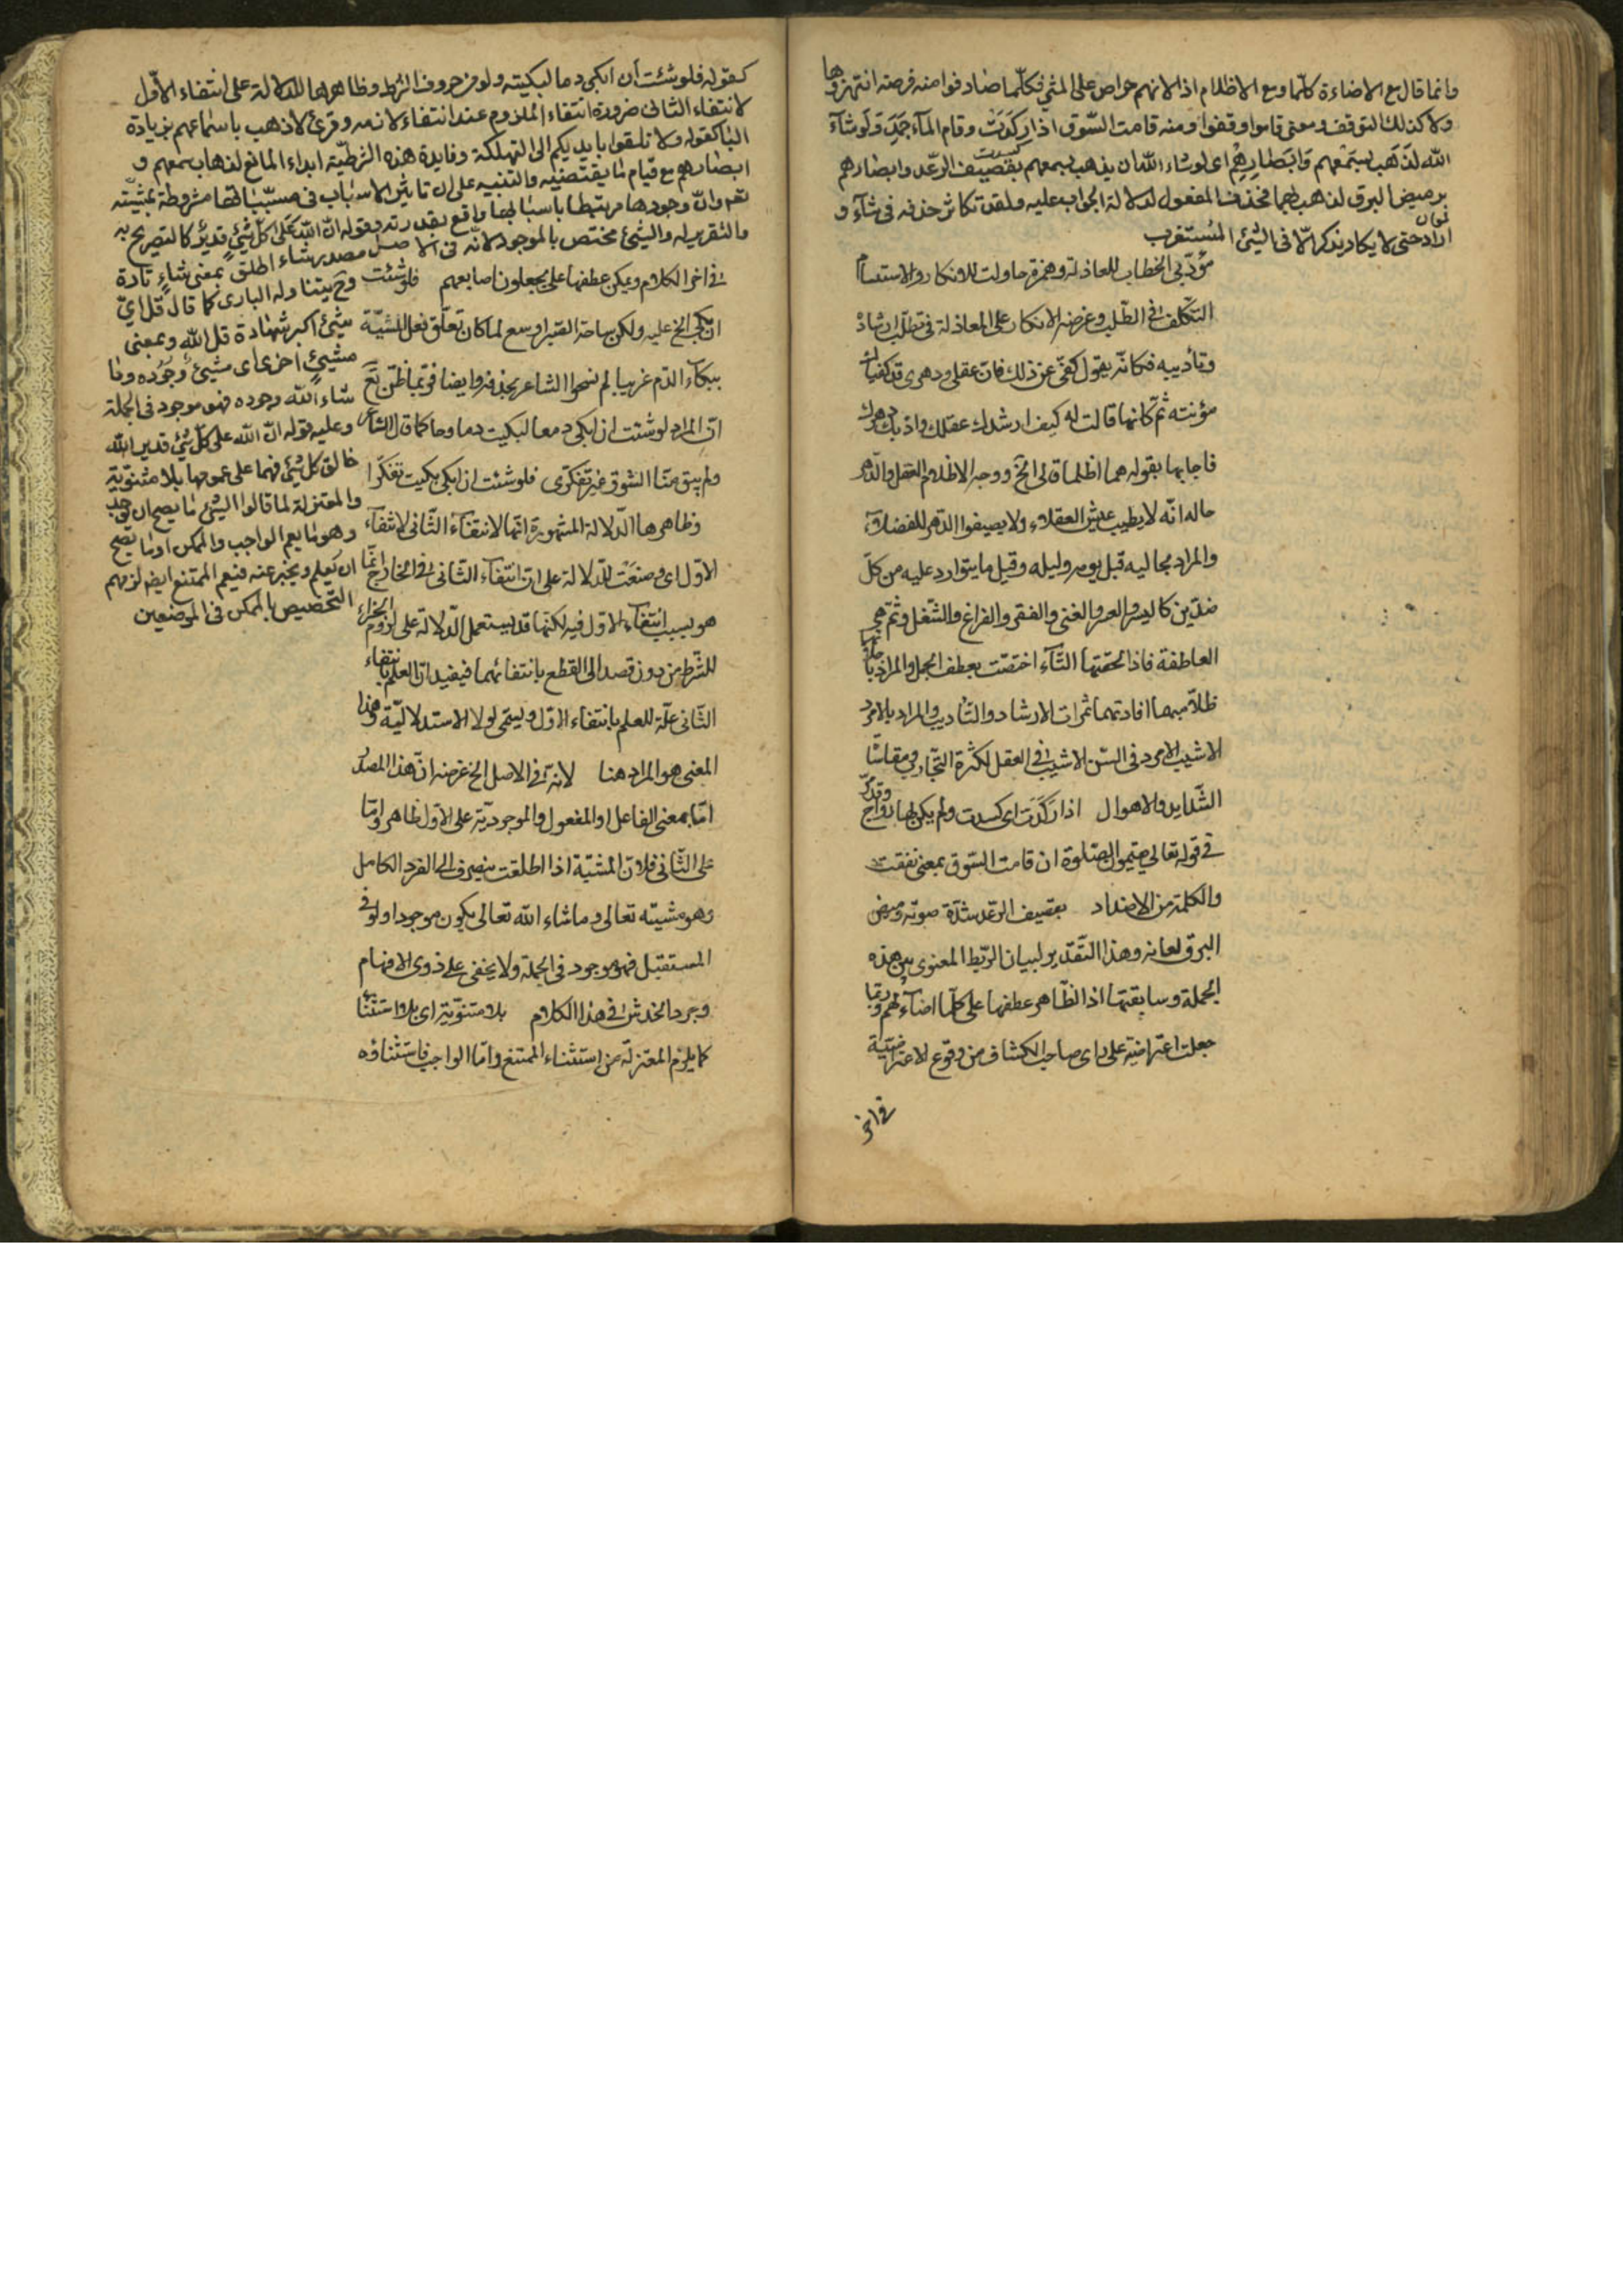 وانما قال مع الاضاءة كلما ومع الاظلام اذا لانهم حراص على المشي فكلما صادفوا منه فرصة انتهزوها
ولا كذلك التوقف ومعنى قاموا وقفوا ومنه قامت السوق اذا ركدت وقام الماء جمد ولو شاء
كسدت
الله لذهب بسمعهم وابصارهم اى لو شاء الله ان يذهب بسمعهم بقصيف الرعد وابصارهم
بوميض البرق لذهب بهما فحذف المفعول لدلالة الجواب عليه ولقد تكاثر حذفه فى شاء و
اراد حتى لا يكاد يذكر الا فى الشئ المستغرب
مؤدبى الخطاب للعاذلة وهمزة حاولت للانكار والاستسام
التكلف فى الطلب وغرضه الانكار على العاذلة فى تطلب ارشاده
وتأديبه فكانه يقول كفى عن ذلك فان عقلى ودهرى قد كفياك
مؤنته ثم كانها قالت له كيف ارشدك عقلك واذبك دهرك
فاجابها بقوله هما اظلما قالى الخ ووجه الاظلام العقل والدهر
حاله انه لا يطيب عيش العقلاء ولا يصفوا الدهر للفضلاء
والمراد بحاليه قيل يومه وليله وقيل ما يتوارد عليه من كل
ضدين كاليسر والعسر والغنى والفقر والفراغ والشغل وثم هى
العاطفة فاذا لحقتها التاء اختصت بعطف الجمل والمراد
ظلاميهما افادتهما ثمرات الارشاد والتاديب والمراد بالامرد
الاشيب الامرد فى السن الاشيب فى العقل لكثرة التجارب ومقاساة
الشدايد والاهوال اذا ركدت اى كسدت ولم يكن لها رواج
فى قوله تعالى يقيمون الصلوة ان قامت السوق بمعنى نفقت
والكلمة من الاضداد بقصيف الرعد شدة صوته وميض
البرق لمعانه وهذا التقدير لبيان الربط المعنوى بين هذه
الجملة وسابقتها اذ الظاهر عطفها على كلما اضاء لهم وربما
جعلت اعتراضية على راى صاحب الكشاف من وقوع الاعتراضية
فى اخر
كقوله فلو شئت أن ابكى دما لبكيته ولو من حروف الشرط وظاهرها الدلالة على انتفاء الاول
لانتفاء الثانى ضرورة انتفاء الملزوم عند انتفاء لازمه وقرئ لاذهب باسماعهم بزيادة
الباء كقوله ولا تلقوا بايديكم الى التهلكة وفايدة هذه الشرطية ابداء المانع لذهاب سمعهم و
ابصارهم مع قيام ما يقتضيه والتنبيه على ان تاثير الاسباب فى مسبباتها مشروطة بمشيته
تعم وان وجودها مرتبطا باسبابها واقع بقدرته وقوله ان الله على كل شئ قدير كالتصريح به
والتقرير له والشئ مختص بالموجود لانه فى الاصل مصدر شاء اطلق بمعنى شاء تارة
وح يتناوله البارى كما قال قل اى
شئ اكبر شهادة قل الله وبمعنى
مشيئ اخرى اى مشيئ وجوده وما
شاء الله وجوده فهو موجود فى الجملة
وعليه قوله ان الله على كل شئ قدير الله
خالق كل شئ فهما على عمومها بلا مثنوية
والمعتزلة لما قالوا الشئ ما يصح ان يوجد
وهو ما يعم الواجب والممكن او ما يصح
ان يعلم ويخبر عنه فيعم الممتنع ايض لزمهم
التخصيص بالممكن فى الموضعين
فى اخر الكلام ويمكن عطفها على يجعلون اصابعهم فلو شئت
ان ابكى الخ عليه ولكن ساحة الصبر اوسع لما كان تعلق فعل المشية
ببكاء الدم غريبا لم يسمح الشاعر بحذفه وايضا فربما ظن تع
ان المراد لو شئت ان ابكى دمعا لبكيت دما وحا كما قال الشاعر
ولم يبق منا الشوق غير تفكرى فلو شئت ان ابكى بكيت تفكرا
وظاهرها الدلالة المشهورة انها لانتفاء الثانى لانتفاء
الاول اى وضعت للدلالة على ان انتفاء الثانى فى الخارج انما
هو بسبب انتفاء الاول فيه لكنها قد يستعمل للدلالة على لزوم الجزاء
للشرط من دون قصد الى القطع بانتفائهما فيفيد ان العلم بانتفاء
الثانى علة للعلم بانتفاء الاول ويسمى لو لا الاستدلالية وهذا
المعنى هو المراد هنا لانه فى الاصل الخ غرضه ان هذا المصدر
اما بمعنى الفاعل او المفعول والموجودية على الاول ظاهر واما
على الثانى فلان المشية اذا اطلقت ينصرف الى الفرد الكامل
وهو مشيته تعالى وما شاء الله تعالى يكون موجودا ولو فى
المستقبل فهو موجود فى الجملة ولا يخفى على ذوى الافهام
وجود الخدش فى هذا الكلام بلا مثنوية اى بلا استثناء
كما يلزم المعتزلة من استثناء الممتنع واما الواجب فاستثناؤه